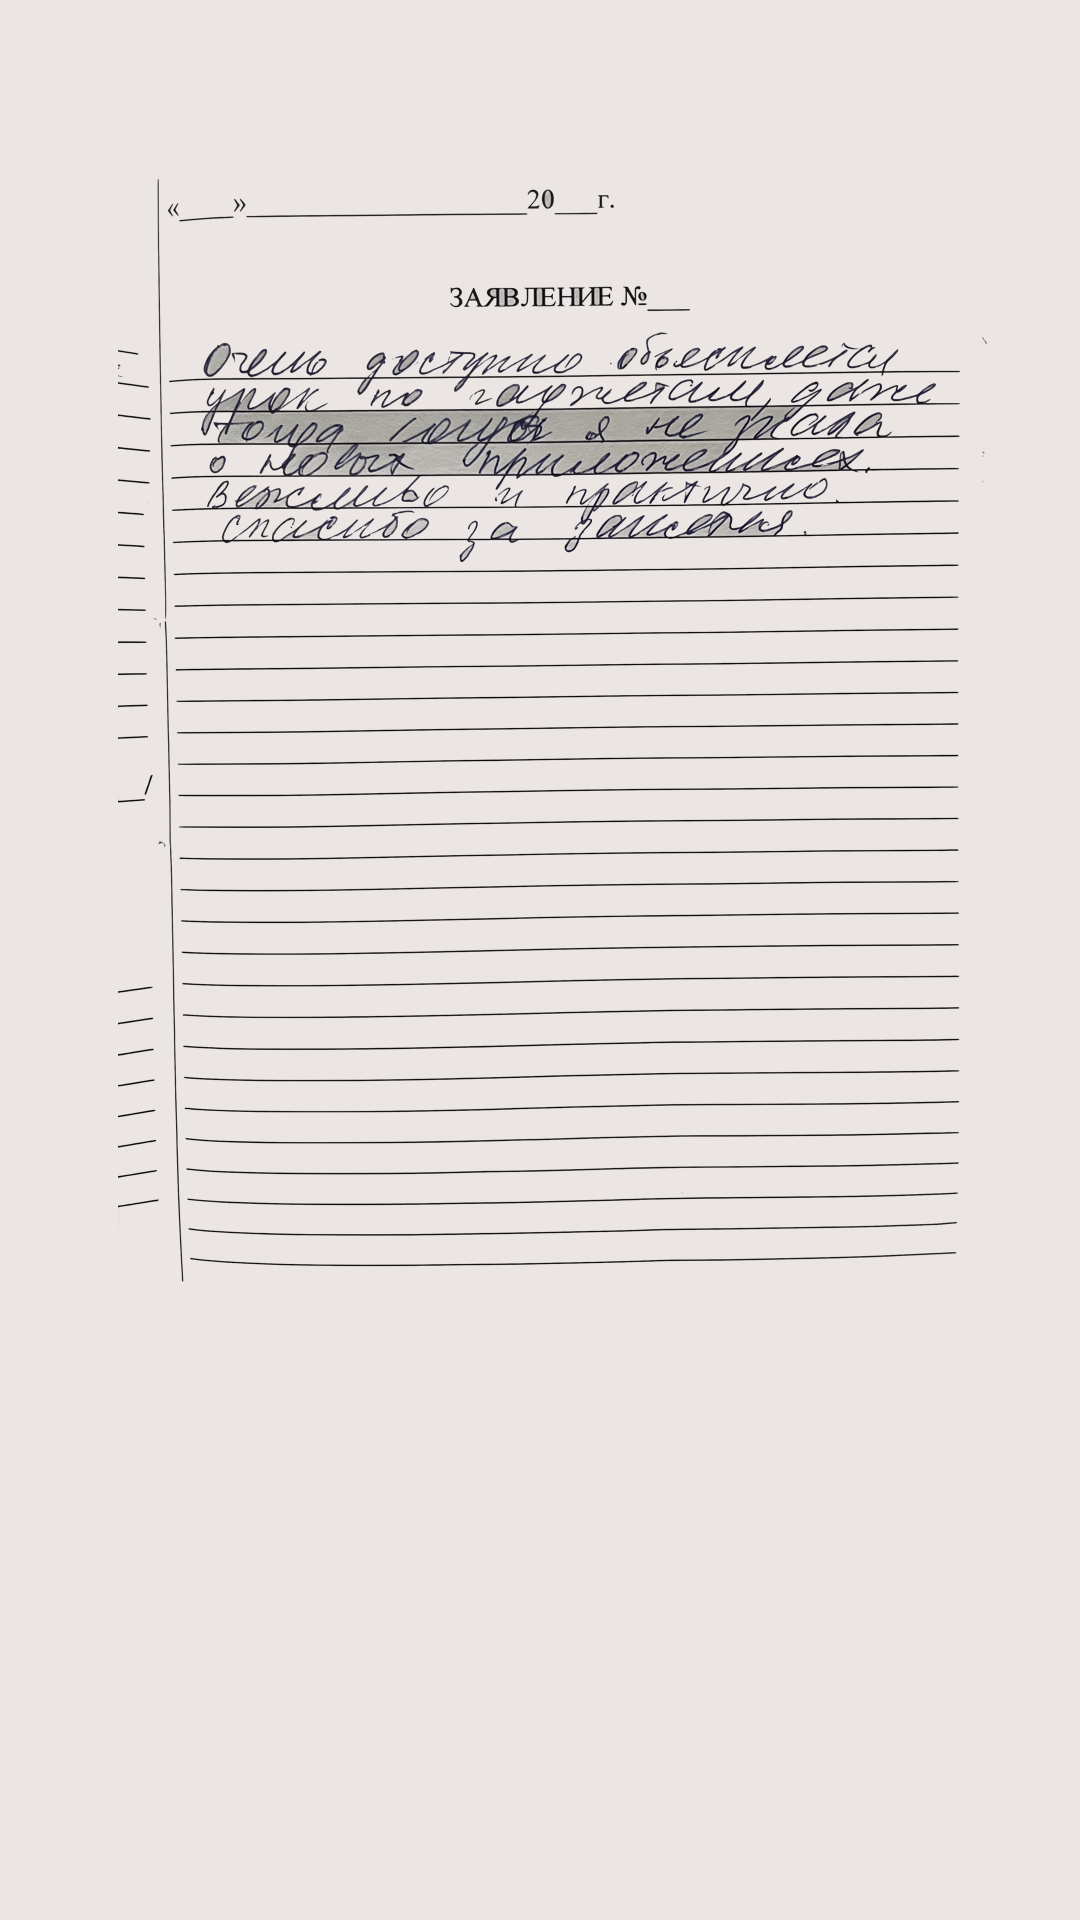 «____»____________________20___г.
ЗАЯВЛЕНИЕ №___
Очень доступно объясняется
урок по гаджетам, даже
тогда когда я не знала
о новых приложениях.
Вежливо и практично.
Спасибо за занятия.